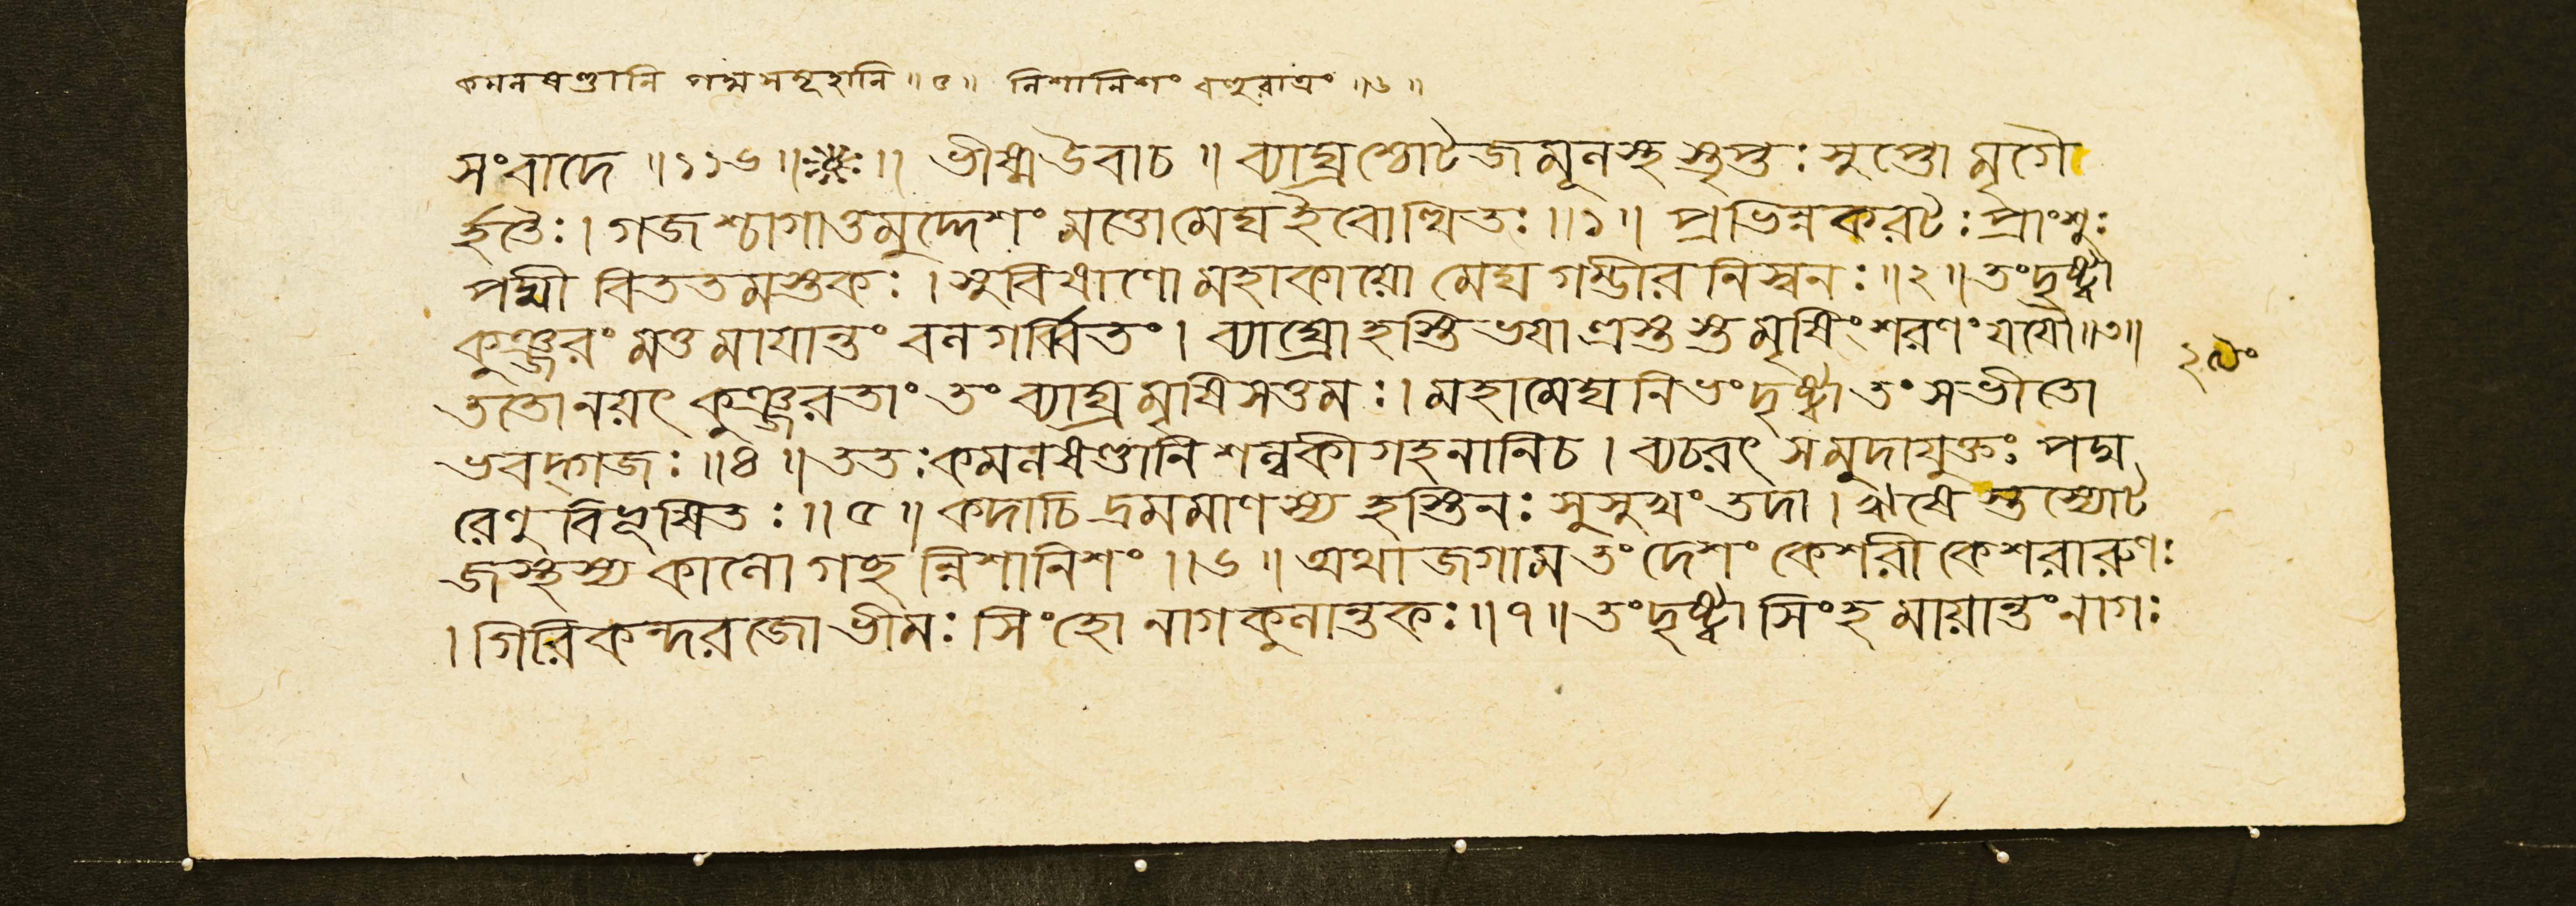 কমলষণ্ডানি পদ্মসমূহানি ॥ ৫ ॥ নিশানিশং বহুরাত্রং ॥ ৬ ॥
সংবাদে ॥ ১১৬ ॥ ॥ ভীষ্মউবাচ ॥ ব্যাঘ্রশ্চোটজমূলস্থস্তৃপ্তঃ সুপ্তো মৃগৈ
র্হতৈঃ । গজশ্চাগাত্তমুদ্দেশং মত্তোমেঘইবোত্থিতঃ ॥ ১ ॥ প্রভিন্নকরটঃ প্রাংশুঃ
পদ্মী বিততমস্তকঃ । সুবিষাণো মহাকায়ো মেঘগম্ভীরনিস্বনঃ ॥ ২ ॥ তংদৃষ্ট্বা
কুঞ্জরং মত্তমাযান্তং বলগর্ব্বিতং । ব্যাঘ্রোহস্তিভযাত্রস্তস্তমৃষিং শরণং যযৌ ॥ ৩ ॥
ততোনয়ৎ কুঞ্জরতাং তং ব্যাঘ্রমৃষিসত্তমঃ । মহামেঘনিভং দৃষ্ট্বা তং সভীতো
ভবদ্গজঃ ॥ ৪ ॥ ততঃ কমলষণ্ডানি শল্লকীগহনানিচ । ব্যচরৎ সমুদাযুক্তঃ পদ্ম
রেণুবিভূষিতঃ ॥ ৫ ॥ কদাচিদ্রমমাণস্য হস্তিনঃ সুসুখং তদা । ঋষেস্তস্যোট
জস্থস্য কালো গচ্ছন্নিশানিশং ॥ ৬ ॥ অথাজগাম তং দেশং কেশরী কেশরারুণঃ
। গিরিকন্দরজো ভীমঃ সিংহো নাগকুলান্তকঃ ॥ ৭ ॥ তংদৃষ্ট্বা সিংহমায়ান্তং নাগঃ